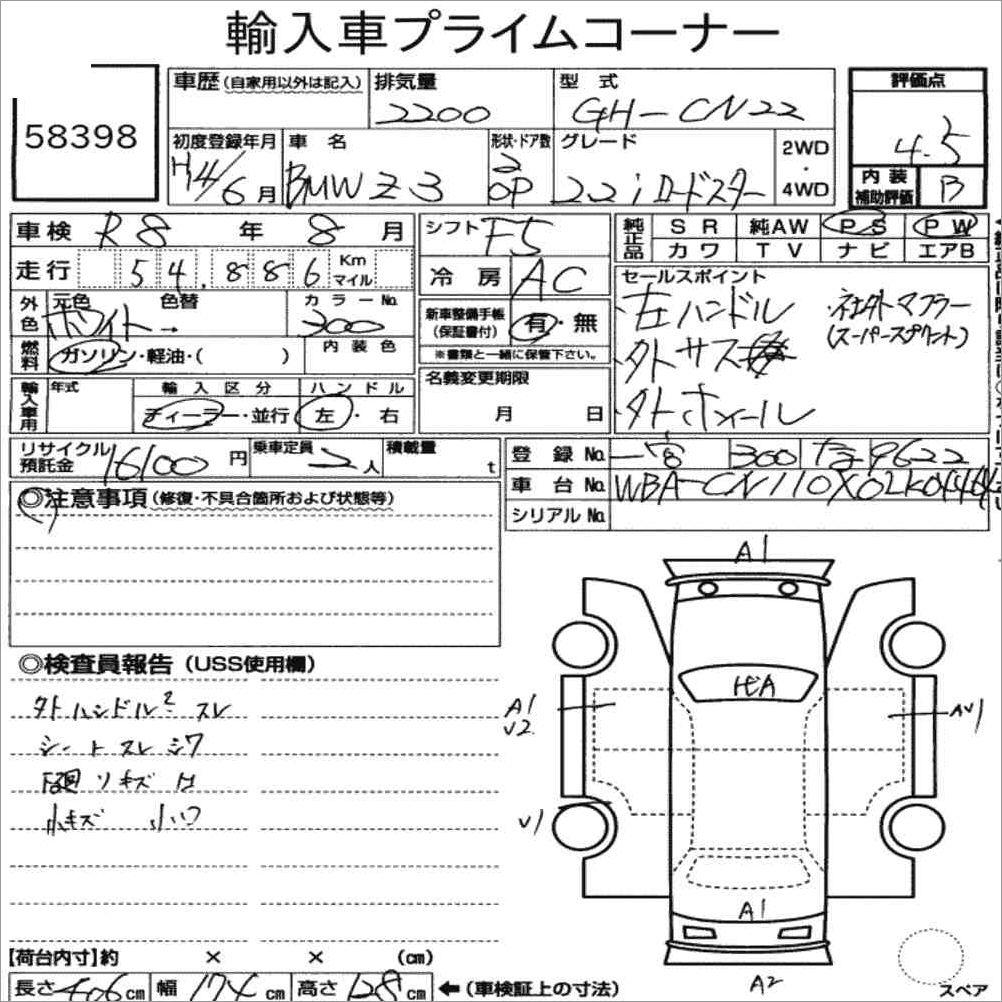 輸入車プライムコーナー
58398
車歴(自家用以外は記入)
排気量
2200
型式
GH-CN22
評価点
4.5
内装補助評価
B
初度登録年月
H14/6月
車名
BMW Z3
形状・ドア数
2
OP
グレード
2.2i ロードスター
2WD・4WD
車検 R8年 8月
走行 54,886 Km マイル
シフト F5
冷房 AC
純正品
SR 純AW PS PW
カワ TV ナビ エアB
セールスポイント
左ハンドル
・社外マフラー
(スーパースプリント)
・外サス
・外ホイール
外色
元色 色替
ホワイト→
カラーNo.
300
燃料
ガソリン・軽油・( )
内装色
新車整備手帳(保証書付)
有・無
※書類と一緒に保管下さい。
名義変更期限
月 日
輸入車用
年式
輸入区分
ディーラー・並行
ハンドル
左・右
リサイクル預託金 16100円
乗車定員 2人
積載量 t
登録No. 300 9622
車台No. WBA-CN110X02K04464
シリアルNo.
◎注意事項(修復・不具合箇所および状態等)
◎検査員報告(USS使用欄)
外ハンドル スレ
シート スレ シワ
下廻りキズ
小キズ 小凹
A1
A1
V2
AV1
V1
A1
A2
スペア
【荷台内寸】約 × × (cm)
長さ 406cm 幅 174cm 高さ 128cm ←(車検証上の寸法)